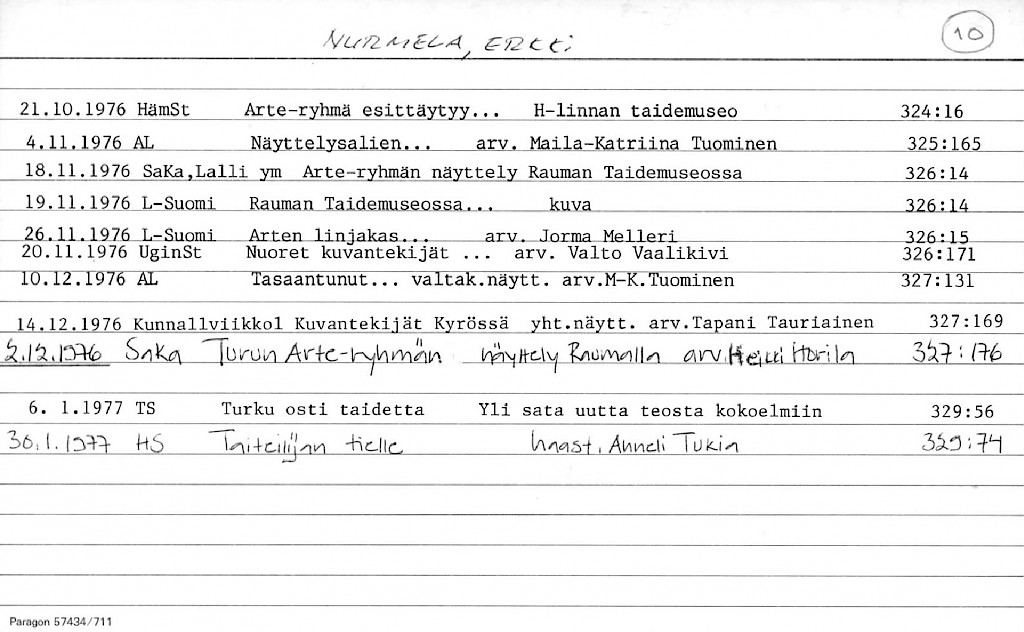 NURMELA, ERKKI 10
21.10.1976 HämSt Arte-ryhmä esittäytyy... H-linnan taidemuseo 324:16
4.11.1976 AL Näyttelysalien... arv. Maila-Katriina Tuominen 325:165
18.11.1976 SaKa,Lalli ym Arte-ryhmän näyttely Rauman Taidemuseossa 326:14
19.11.1976 L-Suomi Rauman Taidemuseossa... kuva 326:14
26.11.1976 L-Suomi Arten linjakas... arv. Jorma Melleri 326:15
20.11.1976 UginSt Nuoret kuvantekijät ... arv. Valto Vaalikivi 326:171
10.12.1976 AL Tasaantunut... valtak.näytt. arv.M-K.Tuominen 327:131
14.12.1976 Kunnallviikkol Kuvantekijät Kyrössä yht.näytt. arv.Tapani Tauriainen 327:169
2.12.1976 SaKa Turun Arte-ryhmän näyttely Raumalla arv. Heikki Horila 327:176
6. 1.1977 TS Turku osti taidetta Yli sata uutta teosta kokoelmiin 329:56
30.1.1977 HS Taiteilijan tielle haast. Anneli Tukia 329:74
Paragon 57434/711